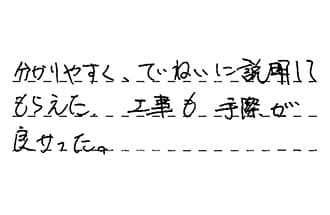 分かりやすく、ていねいに説明して
もらえた。工事も手際が
良かった。